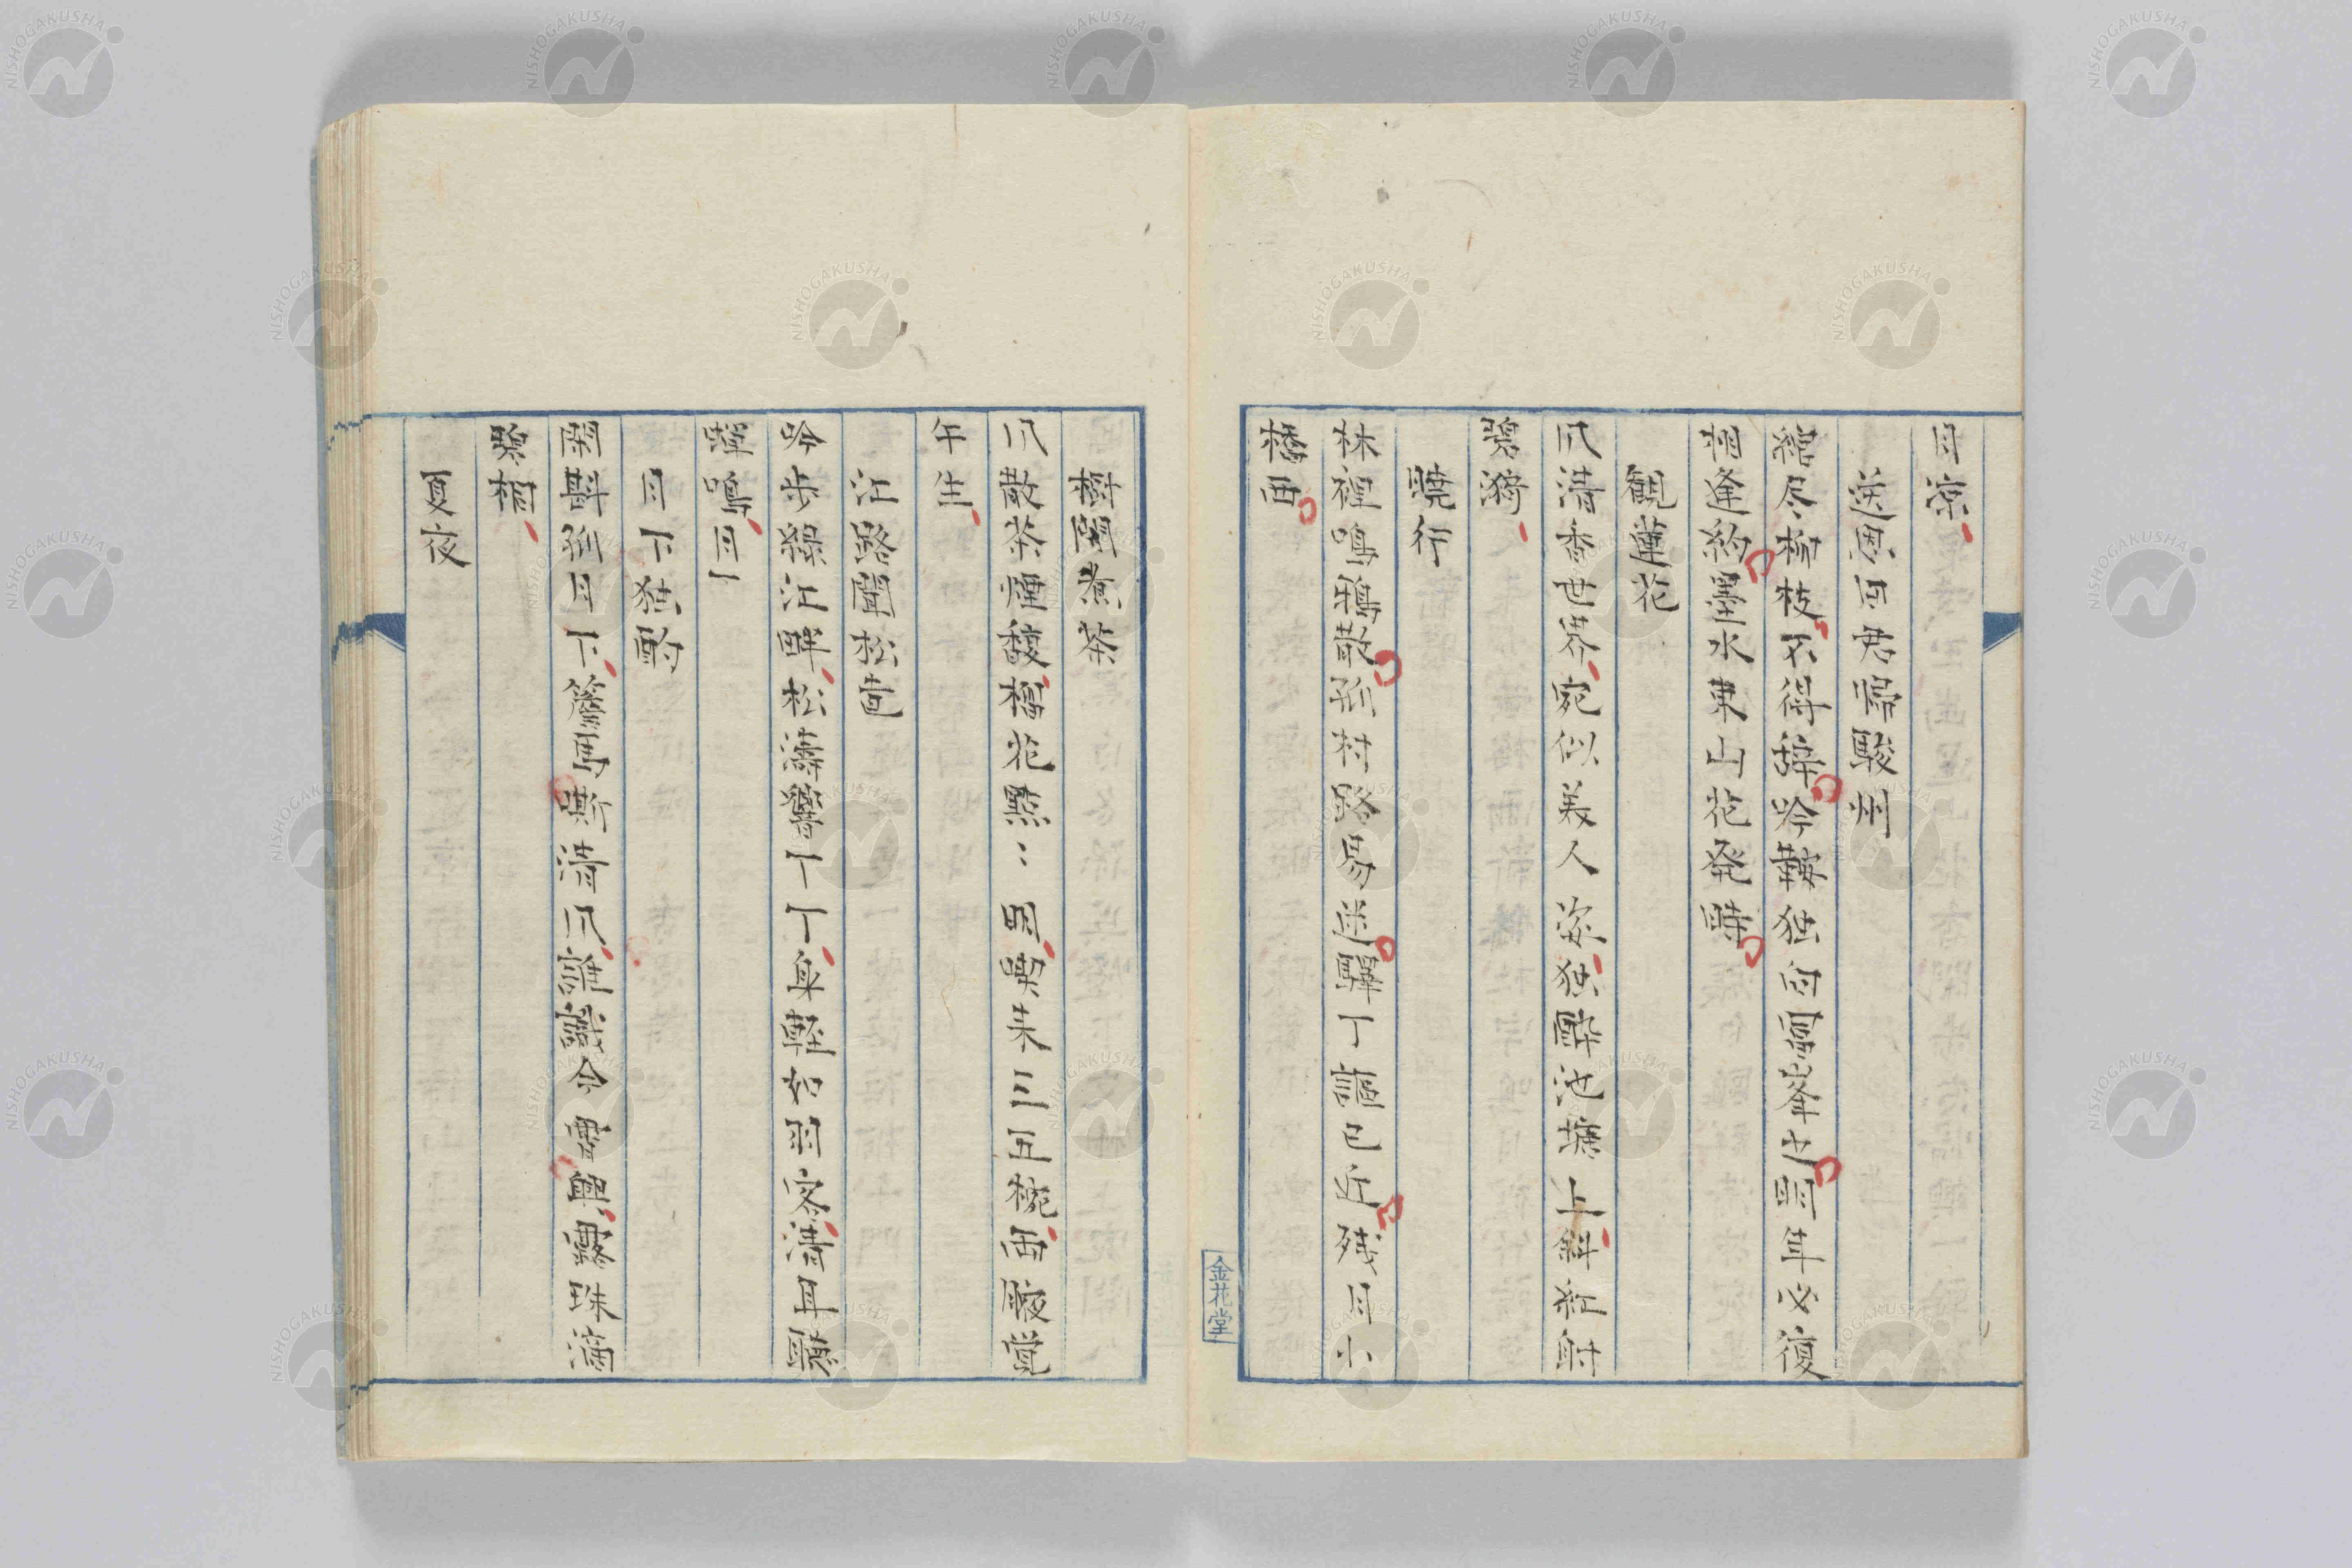 月凉
送恩田君帰駿州
綰尽柳枝不得辞吟鞍独向富峯之明年必復
相逢約墨水東山花発時
観蓮花
爪清香世界宛似美人姿独酔池塘上斜紅射
碧漪
暁行
林裡鳴鴉散孤村路易迷驛丁謳已近残月小
橋西
樹間煮茶
爪散茶煙馥楊花熬〻明喫来三五椀両腋覚
午生
江路聞松
吟歩緑江畔松濤響十丁身軽如羽客清耳聴
蝉鳴月丁
月下独酌
閑斟孤月下簷馬嘶清爪誰識今宵興露珠滴
碧梧
夏夜
金花堂
NISHOGAKUSHA